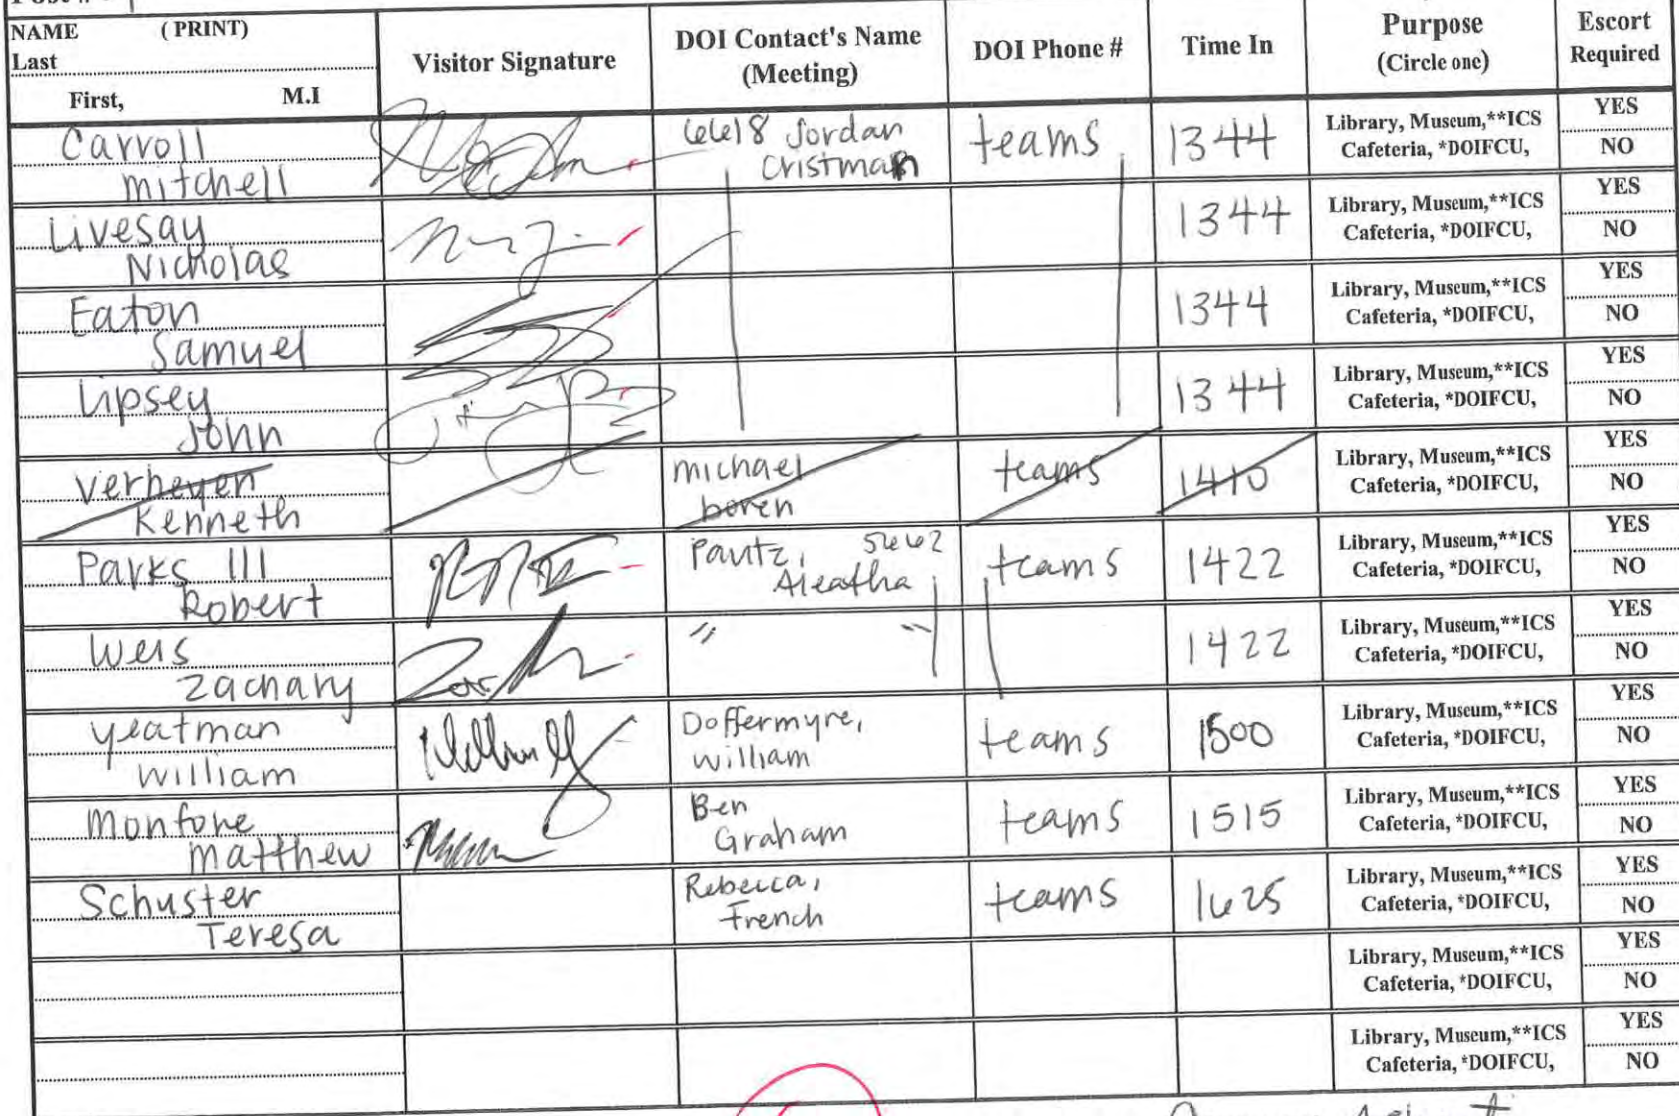 NAME (PRINT)
Last
First, M.I
Visitor Signature
DOI Contact's Name
(Meeting)
DOI Phone #
Time In
Purpose
(Circle one)
Escort
Required
Carroll
mitchell
6618 Jordan
Cristman
teams
1344
Library, Museum,**ICS
Cafeteria, *DOIFCU,
YES
NO
Livesay
Nicholas
1344
Library, Museum,**ICS
Cafeteria, *DOIFCU,
YES
NO
Eaton
Samuel
1344
Library, Museum,**ICS
Cafeteria, *DOIFCU,
YES
NO
Lipsey
John
1344
Library, Museum,**ICS
Cafeteria, *DOIFCU,
YES
NO
Verheyen
Kenneth
michael
boren
teams
1410
Library, Museum,**ICS
Cafeteria, *DOIFCU,
YES
NO
Parks III
Robert
Pautz, 5662
Aleatha
teams
1422
Library, Museum,**ICS
Cafeteria, *DOIFCU,
YES
NO
Weis
Zachary
" "
1422
Library, Museum,**ICS
Cafeteria, *DOIFCU,
YES
NO
Yeatman
William
Doffermyre,
William
teams
1500
Library, Museum,**ICS
Cafeteria, *DOIFCU,
YES
NO
Monfore
matthew
Ben
Graham
teams
1515
Library, Museum,**ICS
Cafeteria, *DOIFCU,
YES
NO
Schuster
Teresa
Rebecca,
French
teams
1625
Library, Museum,**ICS
Cafeteria, *DOIFCU,
YES
NO
Library, Museum,**ICS
Cafeteria, *DOIFCU,
YES
NO
Library, Museum,**ICS
Cafeteria, *DOIFCU,
YES
NO